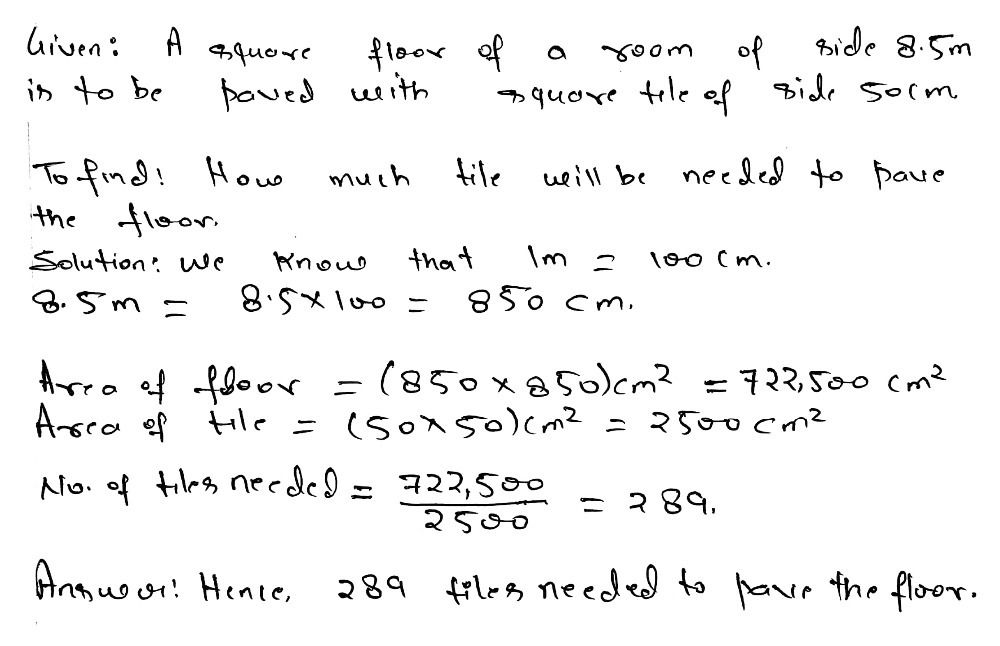 Given: A square floor of a room of side 8.5m
is to be paved with square tile of side 50cm
To find: How much tile will be needed to pave
the floor.
Solution: We know that 1m = 100 cm.
8.5m = 8.5×100 = 850 cm.
Area of floor = (850 × 850)cm² = 722,500 cm²
Area of tile = (50×50)cm² = 2500 cm²
No. of tiles needed = 722,500 / 2500 = 289.
Answer: Hence, 289 tiles needed to pave the floor.